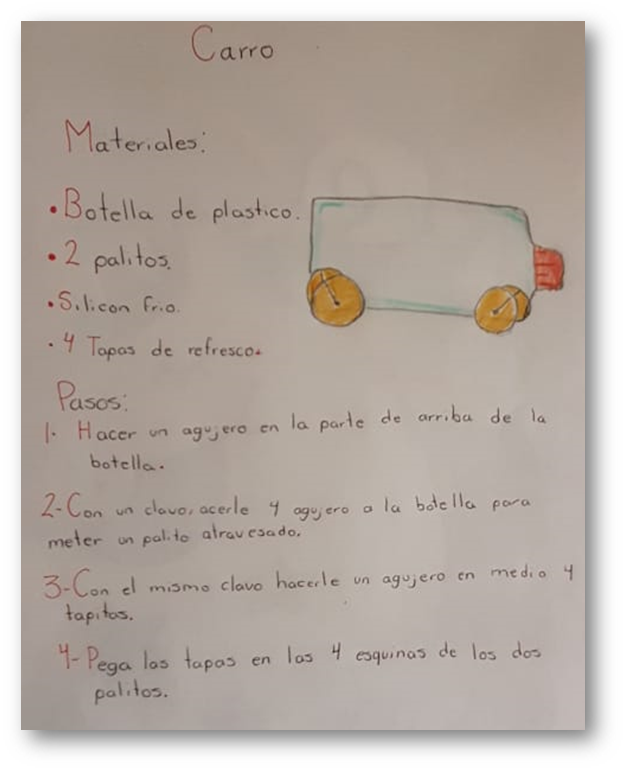 Carro
Materiales:
• Botella de plastico.
• 2 palitos.
• Silicon frio.
• 4 Tapas de refresco.
Pasos:
1. Hacer un agujero en la parte de arriba de la
botella.
2-Con un clavo, acerle 4 agujero a la botella para
meter un palito atravesado.
3-Con el mismo clavo hacerle un agujero en medio 4
tapitas.
4-Pega las tapas en las 4 esquinas de los dos
palitos.